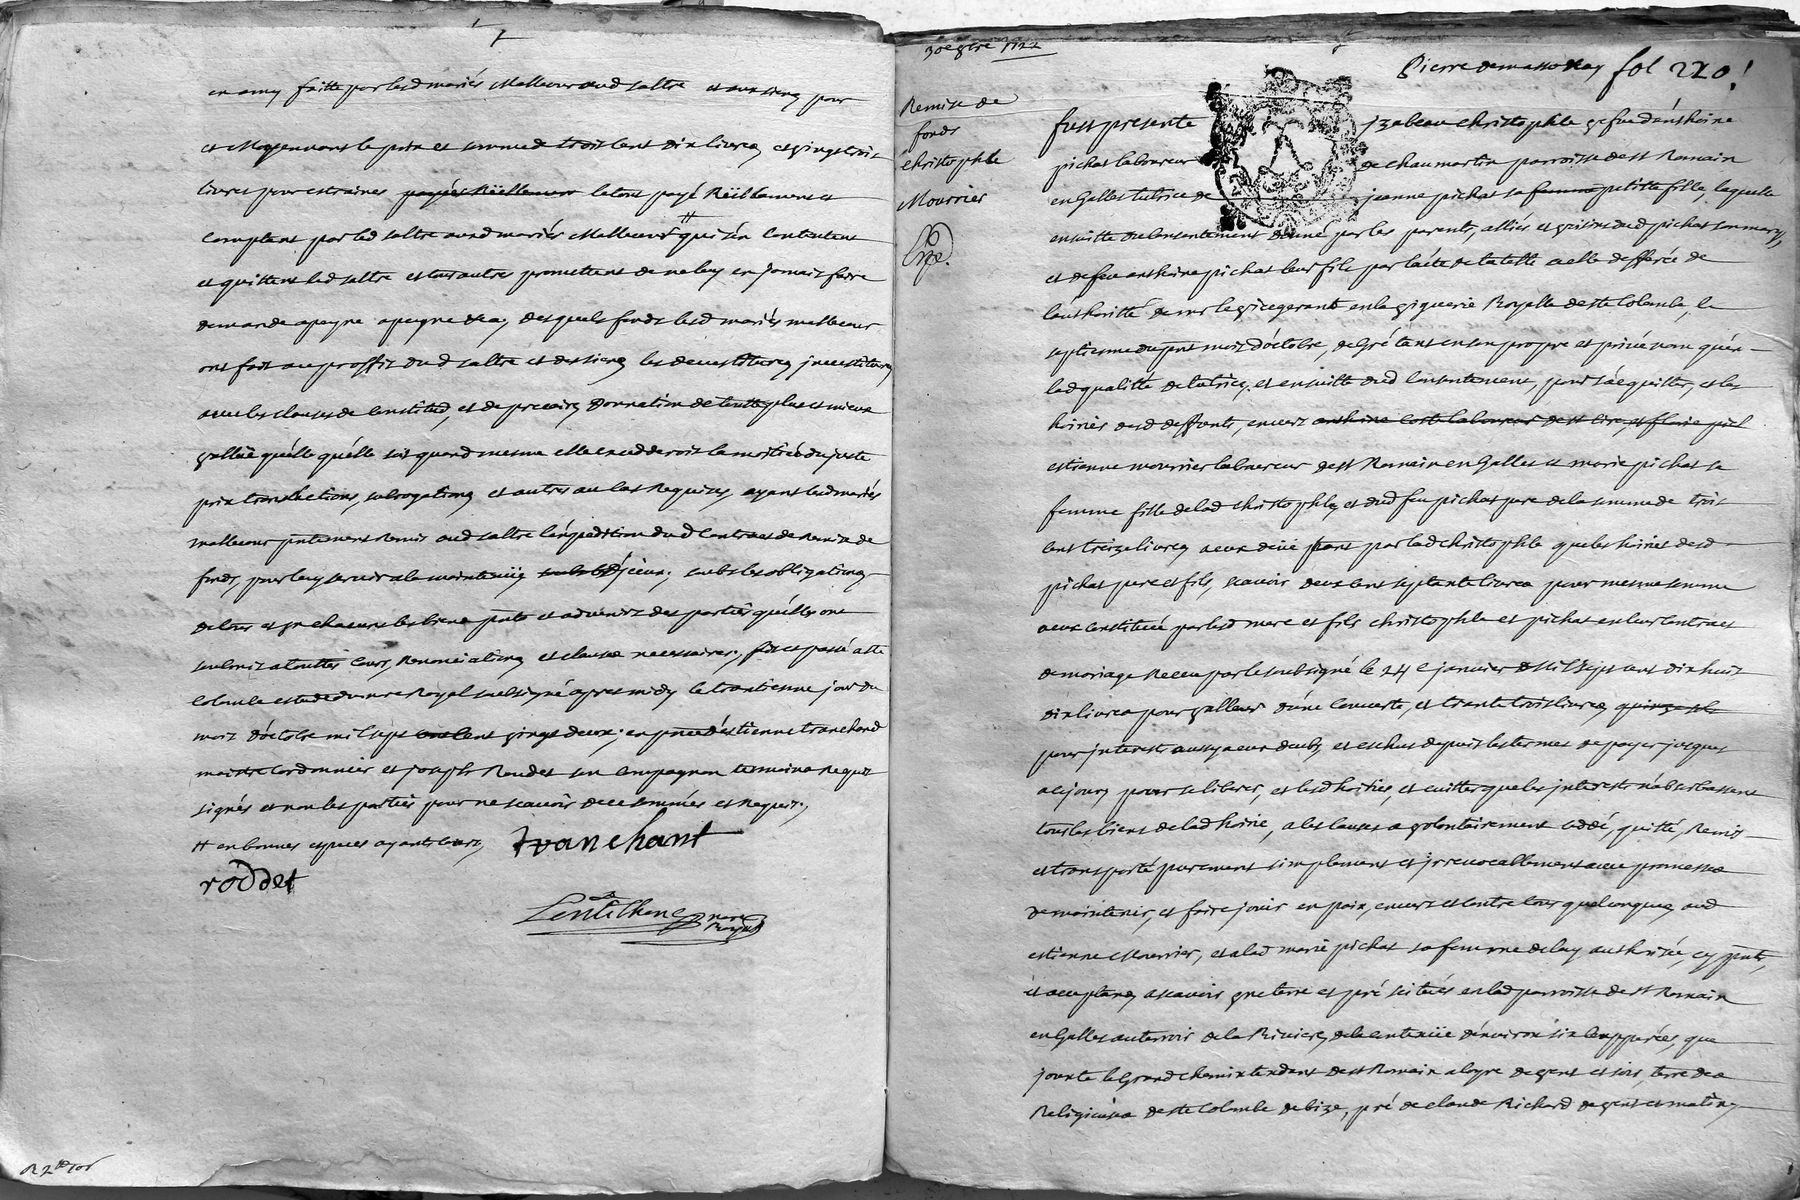 en amy faitte par lesd mariés Malleour aud saltre et aux siens pour
et Moyennant le prix et somme de trois cent dix livres et vingt trois
livres pour estraines payés Réellement le tout payé Réellement et
comptant par led saltre ausd mariés Malleour # qui s'en contentent
et quittent led saltre et tous autres promettent de ne luy en jamais faire
demande a peyne a peyne desquels fonds lesd mariés malleour
ont fait au proffit dud saltre et des siens les devestitures investitures
avec les clauses de constitud, et de precaire, donnation de toutte plus et mieux
vallue qu'elle qu'elle soit quand mesme elle excedderoit la moitié du juste
prix translations, subrogations et autres au cas Requises, ayant lesd mariés
malleour presentement Remis aud saltre l'expedition dud contract de Remise de
fonds, pour luy servir a la maintenüe d'jceux; soubs les obligations
de tous et un chacuns les biens pnts et advenirs des parties qu'elles ont
soubmis a touttes cours, Renonciations et clauses necessaires, fait et passé a ste
Colombe estude du nre Royal soubsigné apres midy le trantiesme jour du
mois d'octobre mil sept cent vingt deux; en pnce d'estienne tranchand
maitre Cordonnier et joseph Roudet son compagnon temoins Requis
signés et non les parties pour ne scavoir de ce sommées et Requis.,
# en bonnes especes ayant cours,
tranchant
roddet
Lentilhenc nore Royal
R 2 10s
30e 8bre 1722
Pierre demasso Ray fol 270!
Remise de
fonds
christophle
Mourrier
Exp.
fust presente jzabeau christophle vefve d'anthoine
pichat laboureur de chaumartin parroisse de st Romain
en Galles tutrice de jeanne pichat sa femme petitte fille, laquelle
en suitte du consentement donné par les parents, alliés et voisins dud pichat son mary
et de feu anthoine pichat leur fils par l'acte de tutelle a elle defférée de
l'authoritté de mr le vicegerant en la viguerie Royalle de ste Colombe, le
septiesme du pnt mois d'octobre, de Gré tant en son propre et privé nom qu'en
lad qualitté de tutrice, et en suitte dud consentement, pour s'acquitter, et les
hoiries desd deffunts, envers anthoine coste laboureur de st cire, et florie pich
estienne mourrier laboureur de st Romain en Galles et marie pichat sa
femme fille de lad christophle, et dud feu pichat pere de la somme de trois
cent treize livres a eux deüe tant par lad christophle que les hoiries desd
pichat pere et fils, scavoir deux cent septante livres pour mesme somme
a eux constituée par lesd mere et fils christophle et pichat en leur contract
de mariage Receu par le soubsigné le 24e janvier mil sept cent dix huit
dix livres pour valleur d'une couverte, et trante trois livres quinze sols
pour jnterests aussy a eux deubs, et eschus depuis les termes de payer jusques
a ce jour, pour se liberer, et lesd hoiries, et evitter que les jnterests n'absorbassent
tous les biens de lad hoirie, a les causes a volontairement ceddé, quitté, Remis
et transporté purement simplement et jrrevocablement avec promesse
de maintenir, et faire jouir en paix, envers et contre tous quelconques, aud
estienne Mourrier, et a lad marie pichat sa femme de luy authorisée, cy pnts,
et acceptans, a scavoir une terre et pré scitués en lad parroisse de st Romain
en Galles au terroir de la Riviere, de la contenüe d'environ six coupperées, que
jouxte le Grand chemin tendant de st Romain a loyre de vent et soir, terre des
Religieuses de ste Colombe de bize, pré de claude Richard de vent et matin,